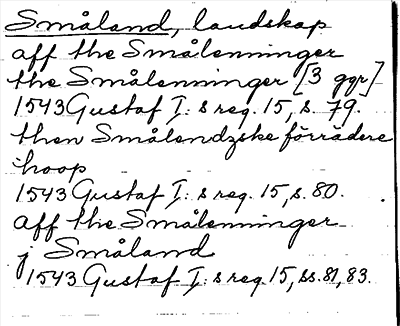 Småland, landskap
aff the Smålenninger
the Smålenninger [3 ggr]
1543 Gustaf I: s reg. 15, s. 79.
then Smålendzske förrädere
hoop
1543 Gustaf I: s reg. 15, s. 80.
aff the Smålenninger
j Småland
1543 Gustaf I: s reg. 15, ss. 81, 83.